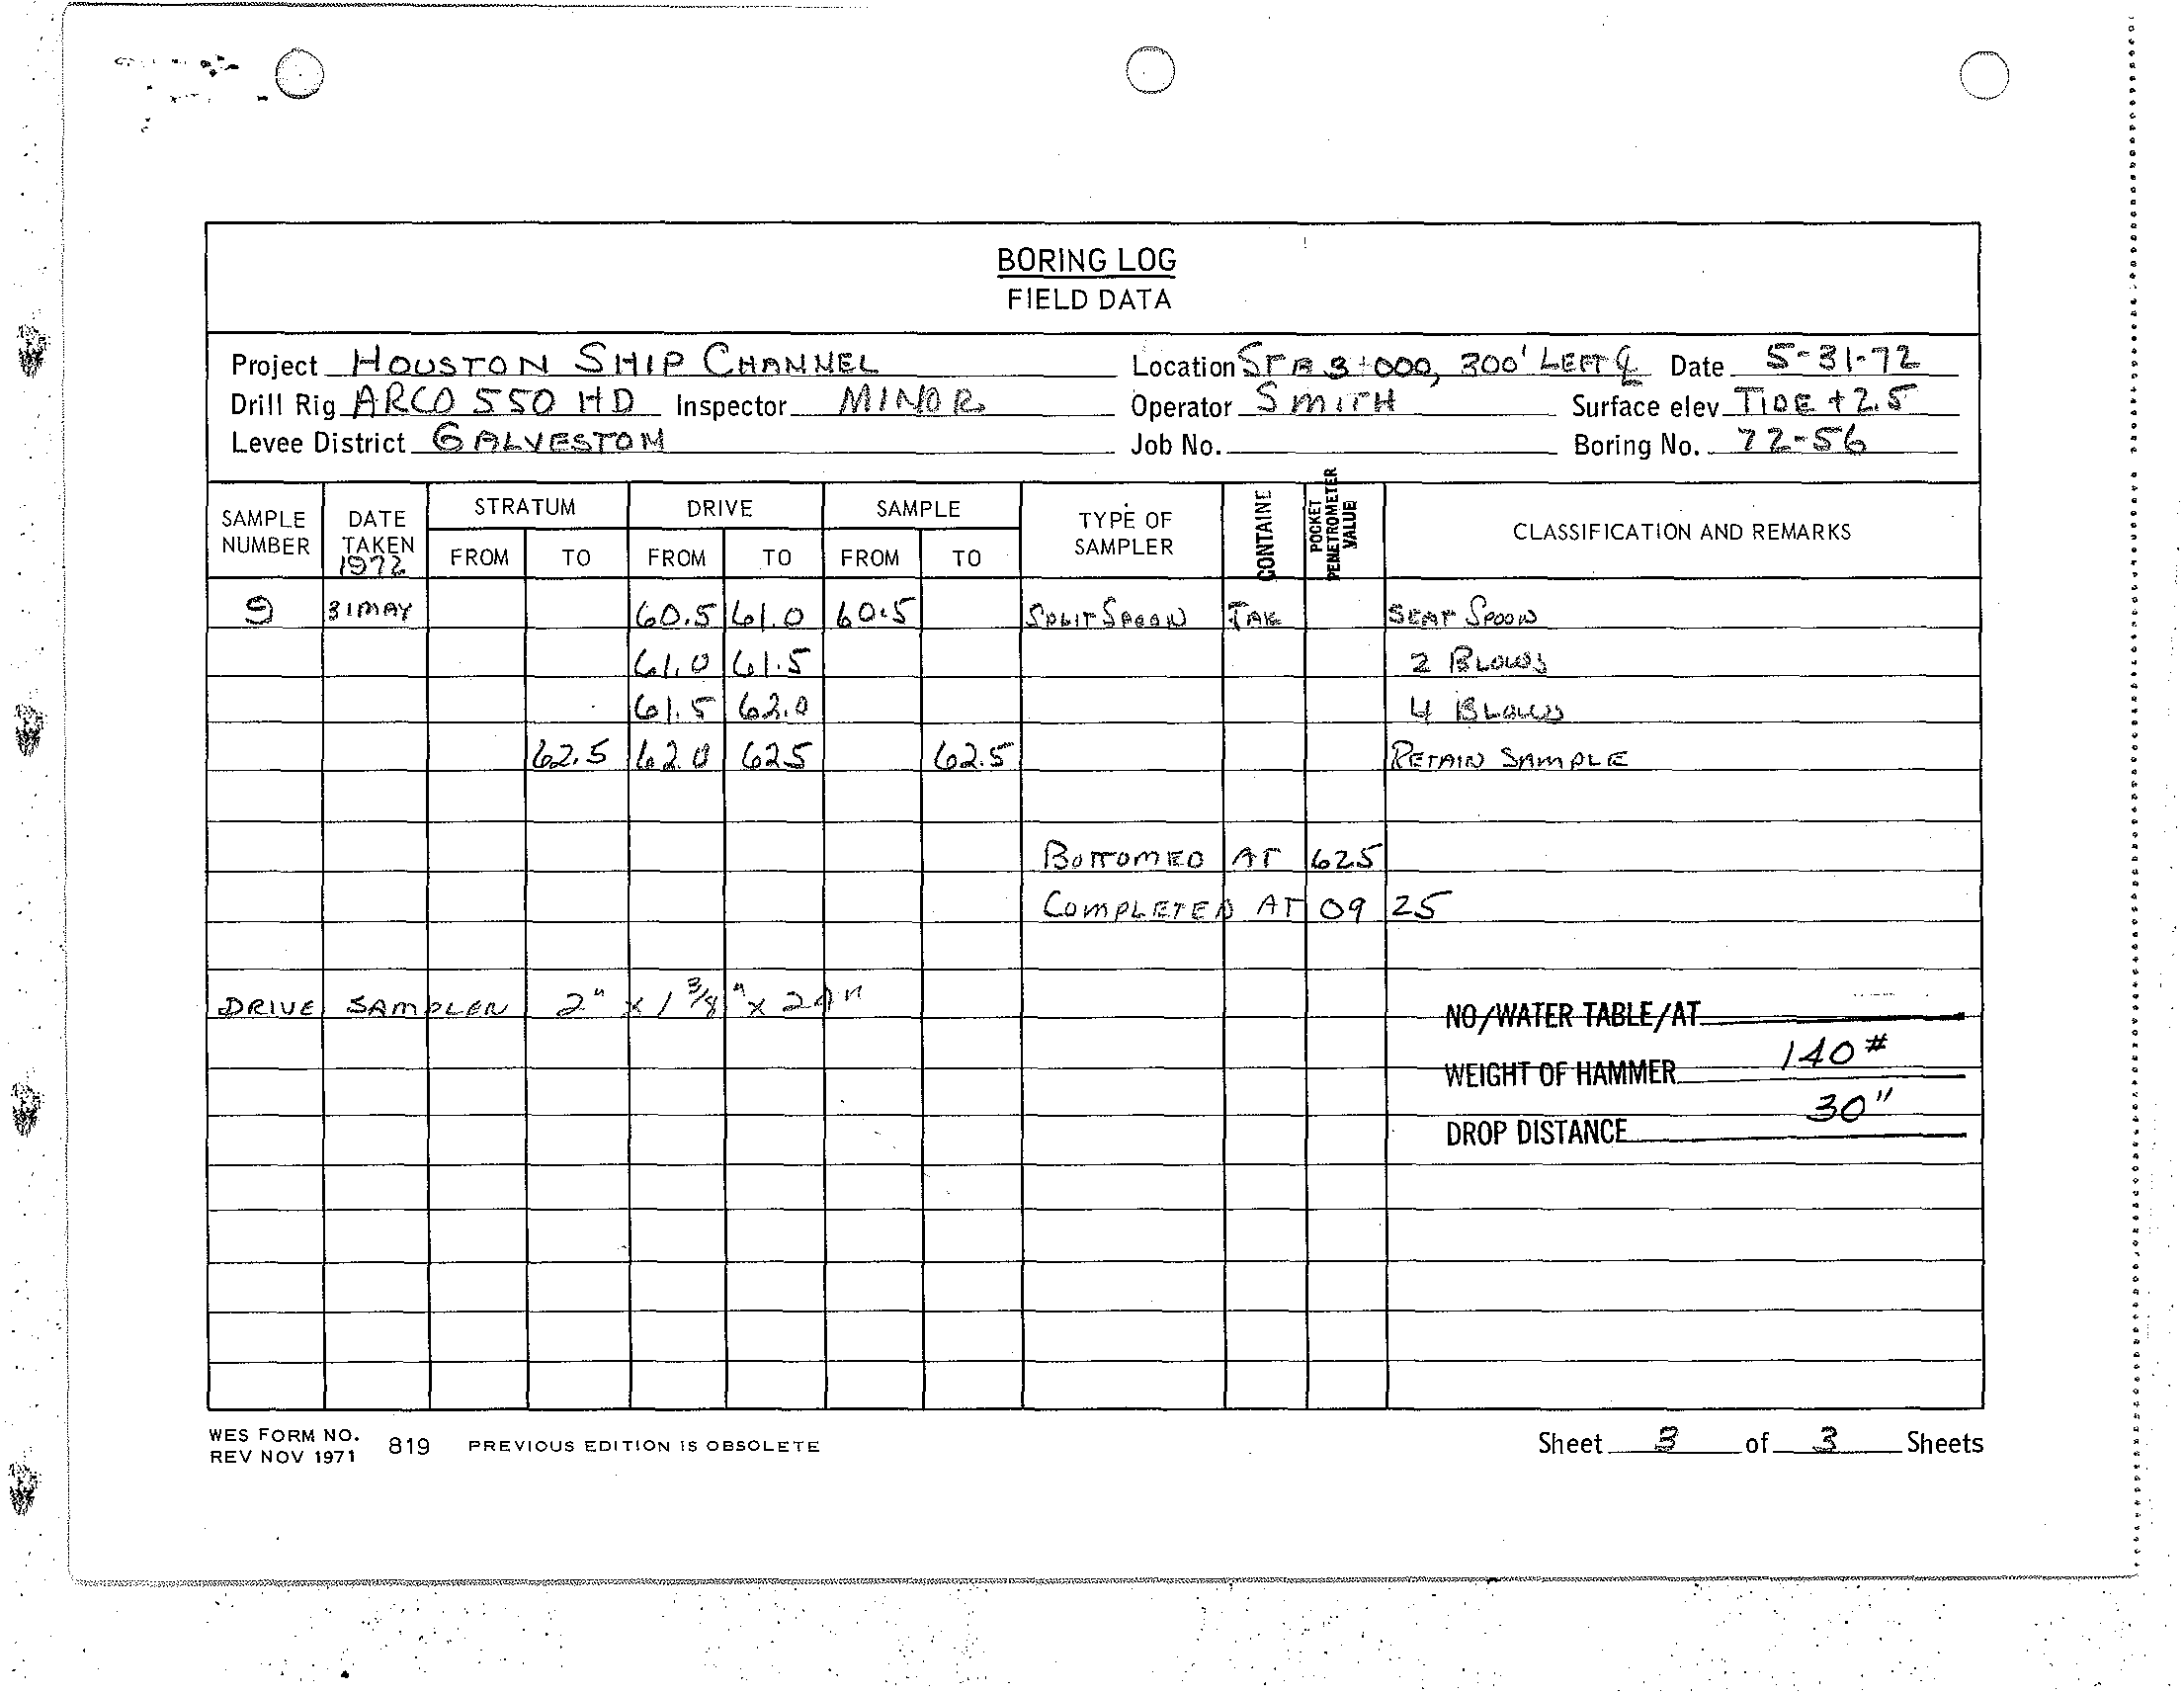 BORING LOG
FIELD DATA
Project HOUSTON SHIP CHANNEL Location STA 3+000, 300' LEFT ℄ Date 5-31-72
Drill Rig ARCO 550 HD Inspector MINOR Operator SMITH Surface elev TIDE +2.5
Levee District GALVESTON Job No. Boring No. 72-56
SAMPLE NUMBER DATE TAKEN 1972 STRATUM DRIVE SAMPLE TYPE OF SAMPLER CONTAINE POCKET PENETROMETER VALUE CLASSIFICATION AND REMARKS
FROM TO FROM TO FROM TO
9 31 MAY 60.5 61.0 60.5 SPLIT SPOON JAR SEAT SPOON
61.0 61.5 2 BLOWS
61.5 62.0 4 BLOWS
62.5 62.0 625 62.5 RETAIN SAMPLE
BOTTOMED AT 625
COMPLETED AT 09 25
DRIVE SAMPLER 2" x 1 3/8" x 24"
NO/WATER TABLE/AT
WEIGHT OF HAMMER 140#
DROP DISTANCE 30"
WES FORM NO. REV NOV 1971 819 PREVIOUS EDITION IS OBSOLETE Sheet 3 of 3 Sheets